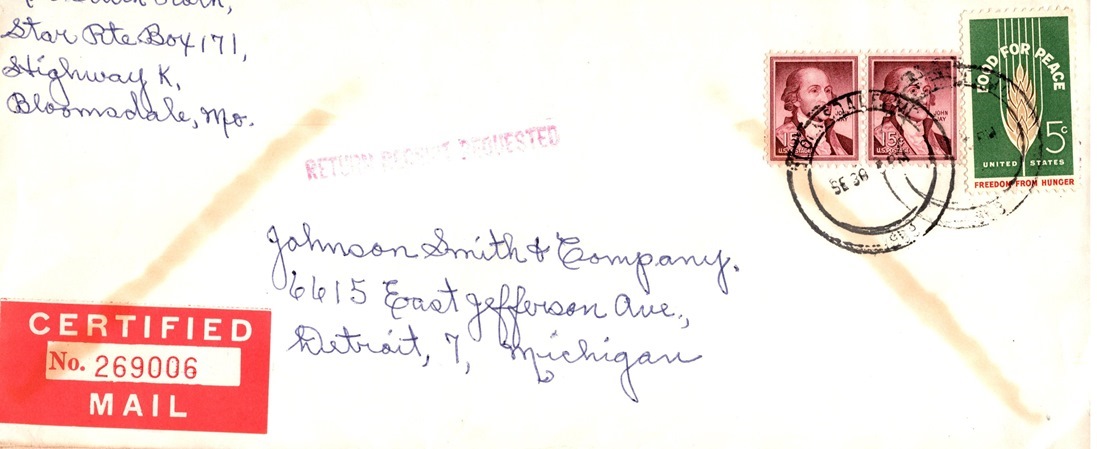 Star Rte Box 171,
Highway K,
Bloomsdale, Mo.
RETURN RECEIPT REQUESTED
Johnson Smith & Company.
6615 East Jefferson Ave.,
Detroit, 7, Michigan
CERTIFIED
No. 269006
MAIL
15¢
U.S. POSTAGE
15¢
JOHN JAY
U.S. POSTAGE
FOOD FOR PEACE
5c
UNITED STATES
FREEDOM FROM HUNGER
BLOOMSDALE, MO.
SE 30
PM
1963